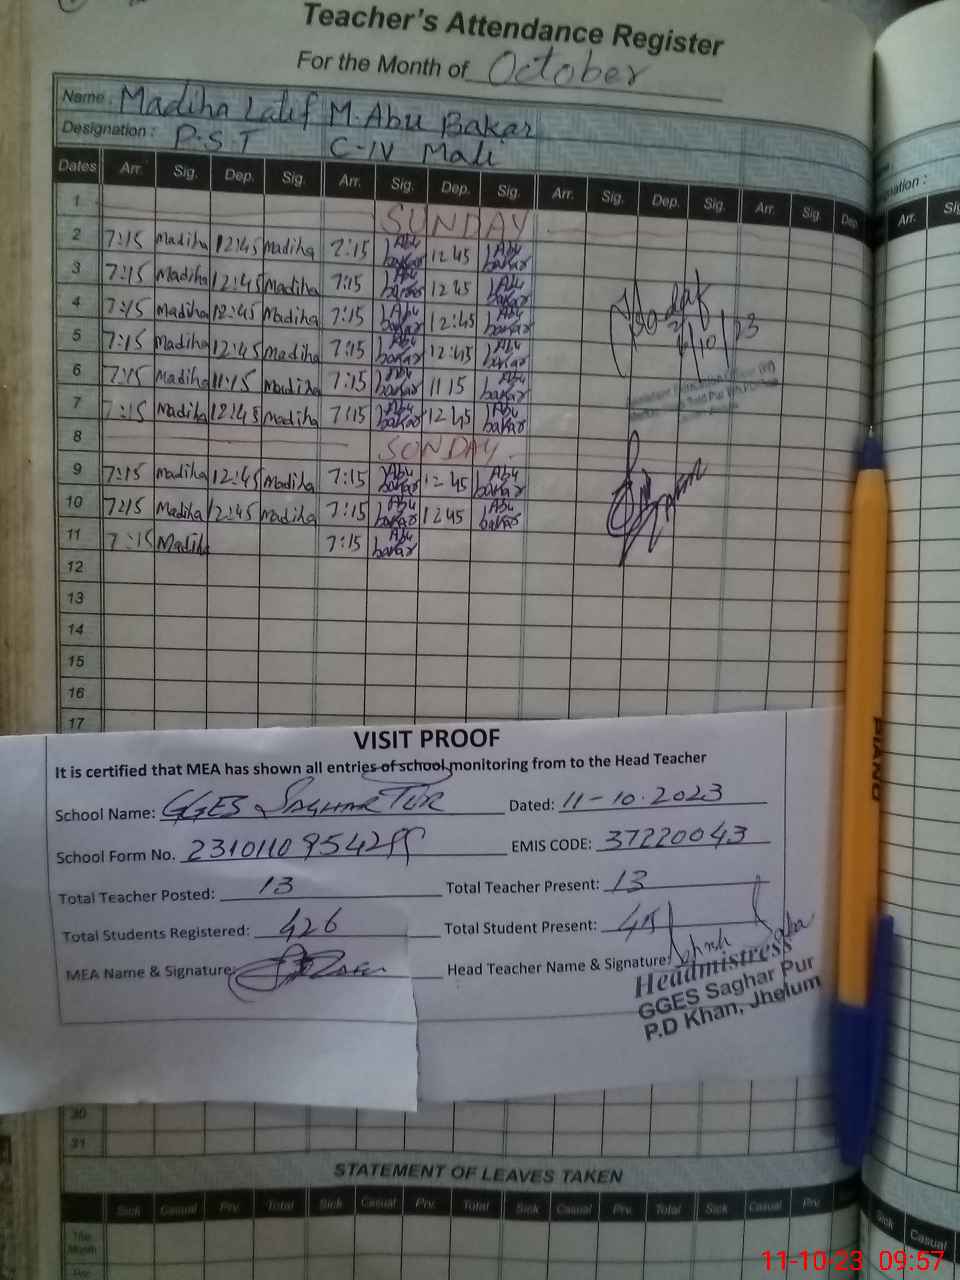 Teacher's Attendance Register
For the Month of October
Name : Madiha Latif M. Abu Bakar
Designation : P.S.T C-IV Mali
Dates Arr. Sig. Dep. Sig. Arr. Sig. Dep. Sig. Arr. Sig. Dep. Sig. Arr. Sig. Dep. Arr. Sig
1 SUNDAY
2 7:15 Madiha 12:45 Madiha 7:15 Abu bakar 12 45 Abu bakar
3 7:15 Madiha 12:45 Madiha 7:15 Abu bakar 12 45 Abu bakar
4 7:15 Madiha 12:45 Madiha 7:15 Abu bakar 12:45 Abu bakar
5 7:15 Madiha 12:45 Madiha 7:15 Abu bakar 12:45 Abu bakar
6 7:15 Madiha 11:15 Madiha 7:15 Abu bakar 11 15 Abu bakar
7 7:15 Madiha 12:45 Madiha 7:15 Abu bakar 12 45 Abu bakar
8 SUNDAY
9 7:15 Madiha 12:45 Madiha 7:15 Abu bakar 12 45 Abu bakar
10 7:15 Madiha 12:45 Madiha 7:15 Abu bakar 12 45 Abu bakar
11 7:15 Madiha 7:15 Abu bakar
12
13
14
15
16
17
VISIT PROOF
It is certified that MEA has shown all entries of school monitoring from to the Head Teacher
School Name: GGES Saghar Pur Dated: 11-10.2023
School Form No. EMIS CODE: 37220043
Total Teacher Posted: 13 Total Teacher Present: 13
Total Students Registered: 426 Total Student Present:
MEA Name & Signature: Head Teacher Name & Signature
Headmistress
GGES Saghar Pur
P.D Khan, Jhelum
30
31
STATEMENT OF LEAVES TAKEN
Sick Casual Prv. Total Sick Casual Prv. Total Sick Casual Prv. Total Sick Casual Prv. Sick Casual
This Month
PIANO
11-10-23 09:57